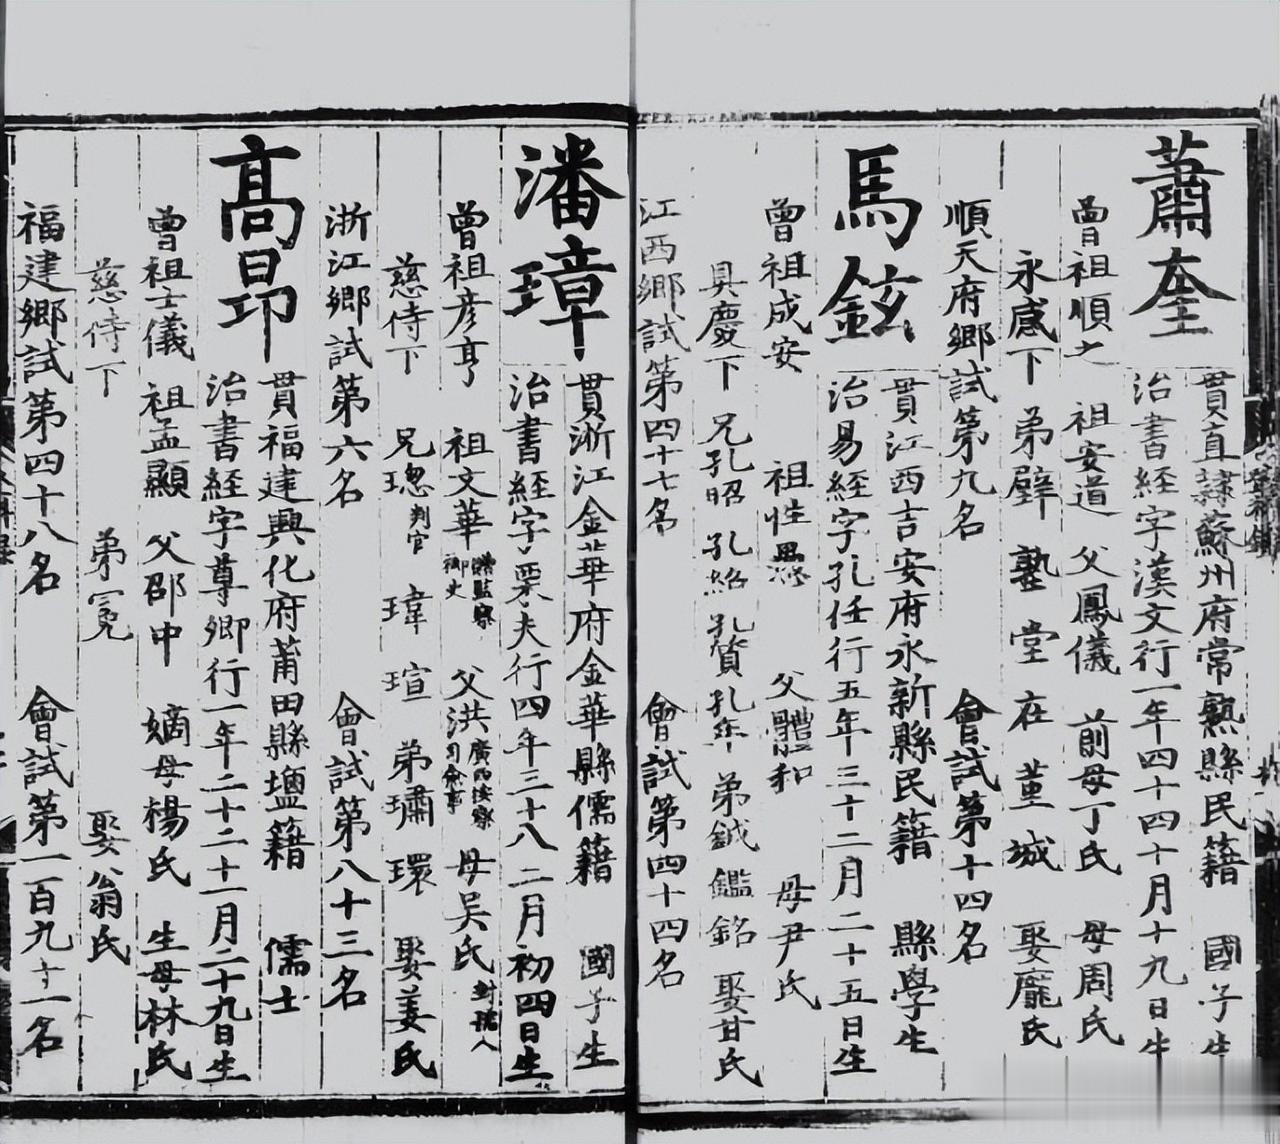 蕭奎
貫直隷蘇州府常熟縣民籍 國子生
治書經字漢文行一年四十四十月十九日生
曾祖順之 祖安道 父鳳儀 前母丁氏 母周氏
永感下 弟壁 塾 堂 在 堇 城 娶龐氏
順天府鄉試第九名 會試第十四名
馬鉉
貫江西吉安府永新縣民籍 縣學生
治易經字孔任行五年三十二月二十五日生
曾祖成安 祖性 父體和 母尹氏
具慶下 兄孔昭 孔紹 孔質 孔年 弟鉞 鑑 銘 娶甘氏
江西鄉試第四十七名 會試第四十四名
潘璋
貫浙江金華府金華縣儒籍 國子生
治書經字栗夫行四年三十八二月初四日生
曾祖彥亨 祖文華贈監察御史 父洪廣西按察司僉事 母吳氏封孺人
慈侍下 兄璁判官 瑋 瑄 弟璛 環 娶姜氏
浙江鄉試第六名 會試第八十三名
高昂
貫福建興化府莆田縣鹽籍 儒士
治書經字尊卿行一年二十二十一月二十九日生
曾祖士儀 祖孟顯 父邵中 嫡母楊氏 生母林氏
慈侍下 弟冕 娶翁氏
福建鄉試第四十八名 會試第一百九十一名